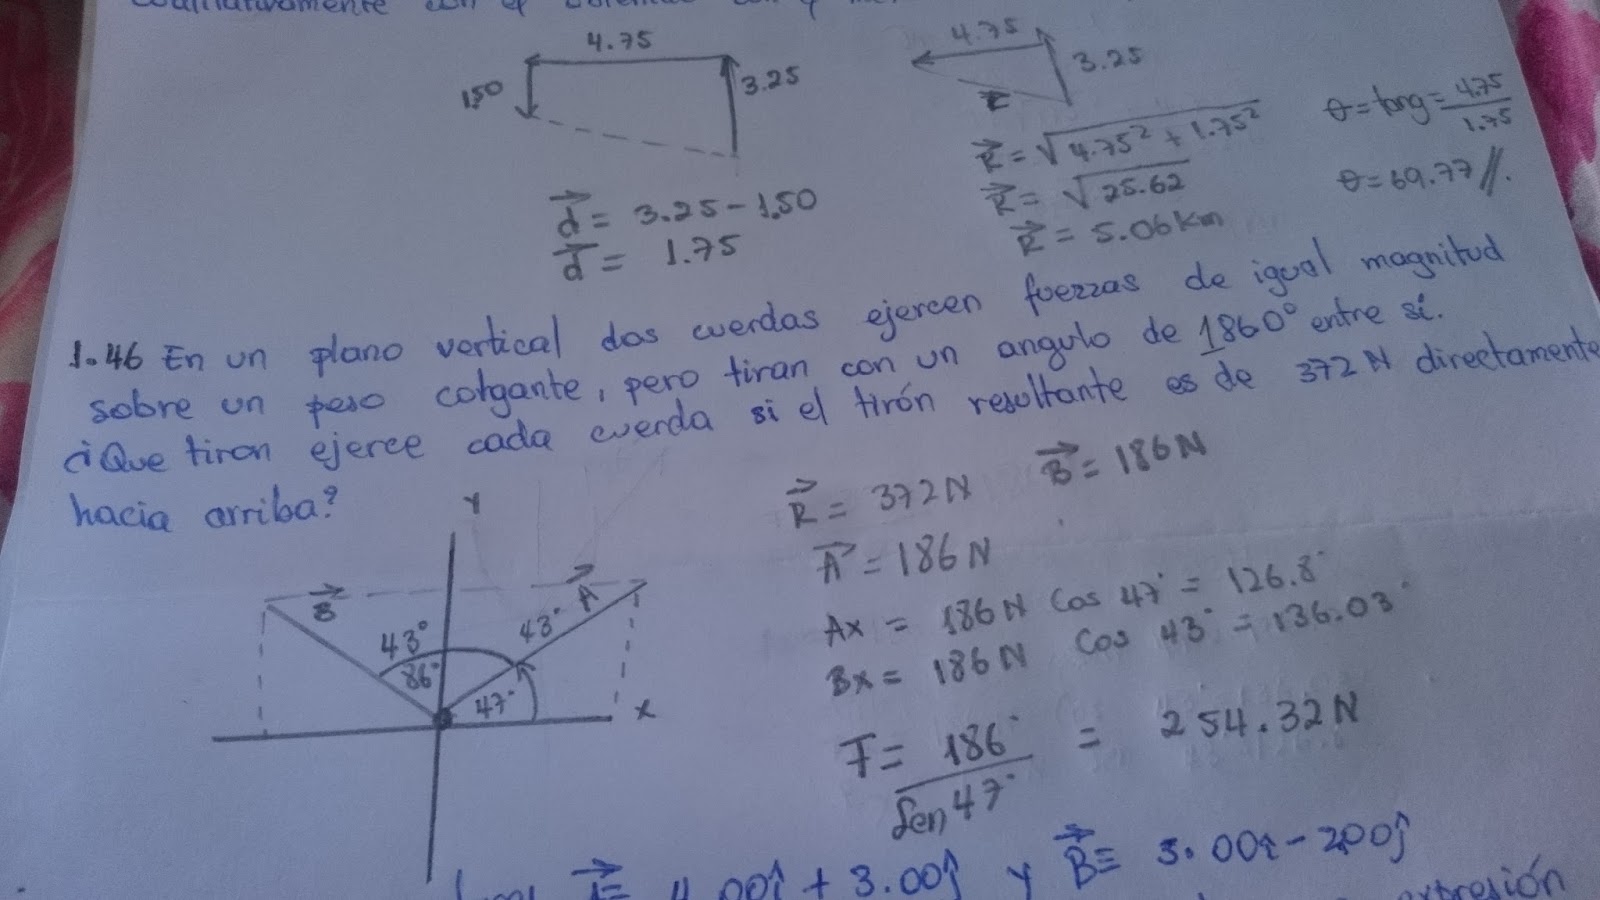 cualitativamente con el
4.75
3.25
1,50
d = 3.25 - 1.50
d = 1.75
4.75
3.25
R
R = √4.75² + 1.75²
R = √25.62
R = 5.06 km
θ = tang = 4.75
1.75
θ = 69.77 //.
1.46 En un plano vertical dos cuerdas ejercen fuerzas de igual magnitud
sobre un peso colgante, pero tiran con un angulo de 1860° entre si.
¿Que tiron ejerce cada cuerda si el tirón resultante es de 372 N directamente
hacia arriba?
Y
B
A
43°
43°
86°
47°
X
R = 372 N
B = 186 N
A = 186 N
Ax = 186 N Cos 47° = 126.8°
Bx = 186 N Cos 43° = 136.03°
F = 186° = 254.32 N
Sen 47°
A = 4.00î + 3.00ĵ y B = 5.00î - 2,00ĵ
expresión